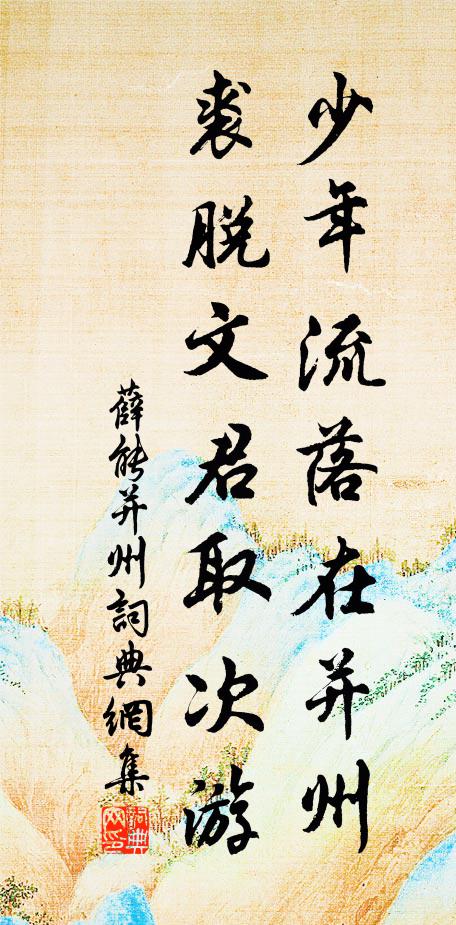 少年流落在并州
裘脫文君取次游
薛能并州詞典網集
詞典網印